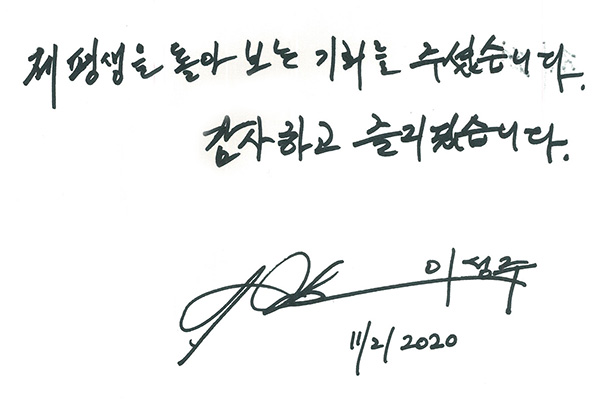 제 평생을 돌아 보는 기회를 주셨습니다.
감사하고 즐거웠습니다.
이성주
11/2/2020